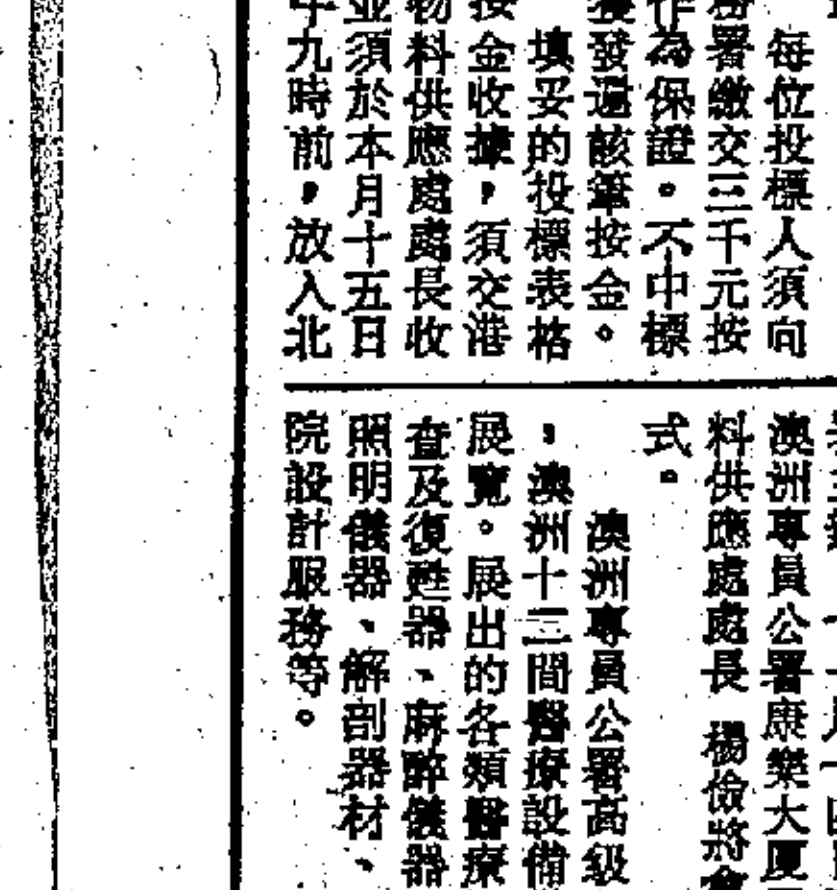 每位投標人須向
署繳交三千元按
作為保證。不中標
獲發還該筆按金。
填妥的投標表格
按金收據，須交港
物料供應處處長收
並須於本月十五日
午九時前，放入北
澳洲專員公署康樂大廈
料供應處處長 楊儉將會
式。
澳洲專員公署高級
，澳洲十三間醫療設備
展覽。展出的各類醫療
查及復甦器、麻醉儀器
照明儀器、解剖器材、
院設計服務等。